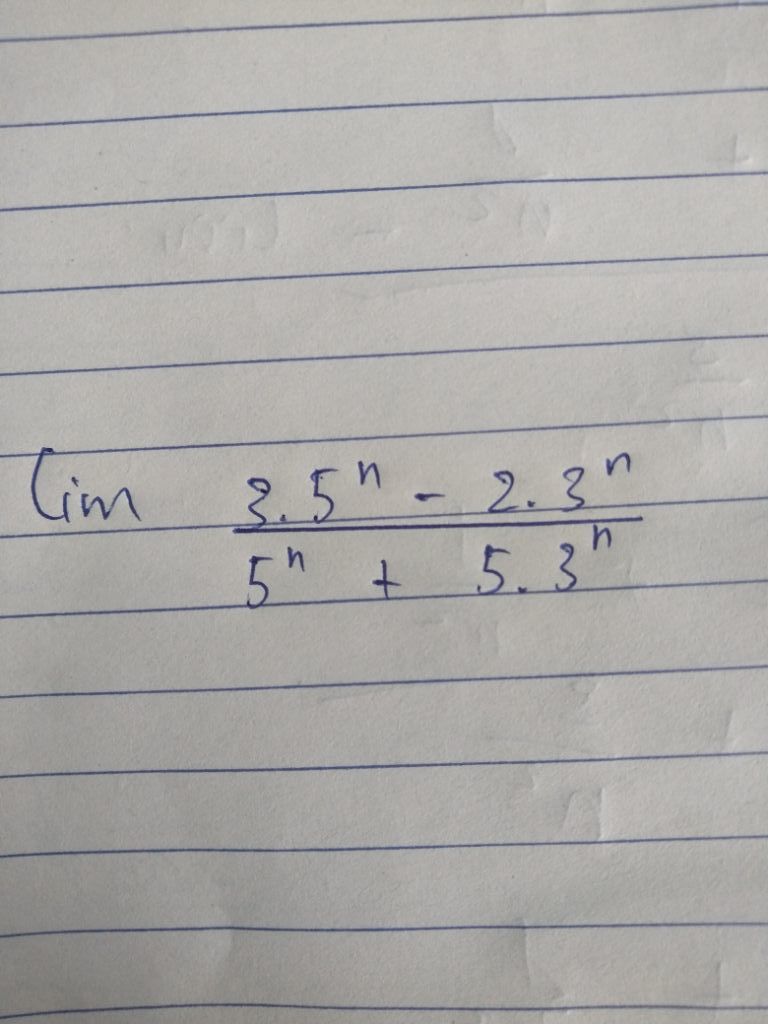 lim 3.5ⁿ - 2.3ⁿ
5ⁿ + 5.3ⁿ